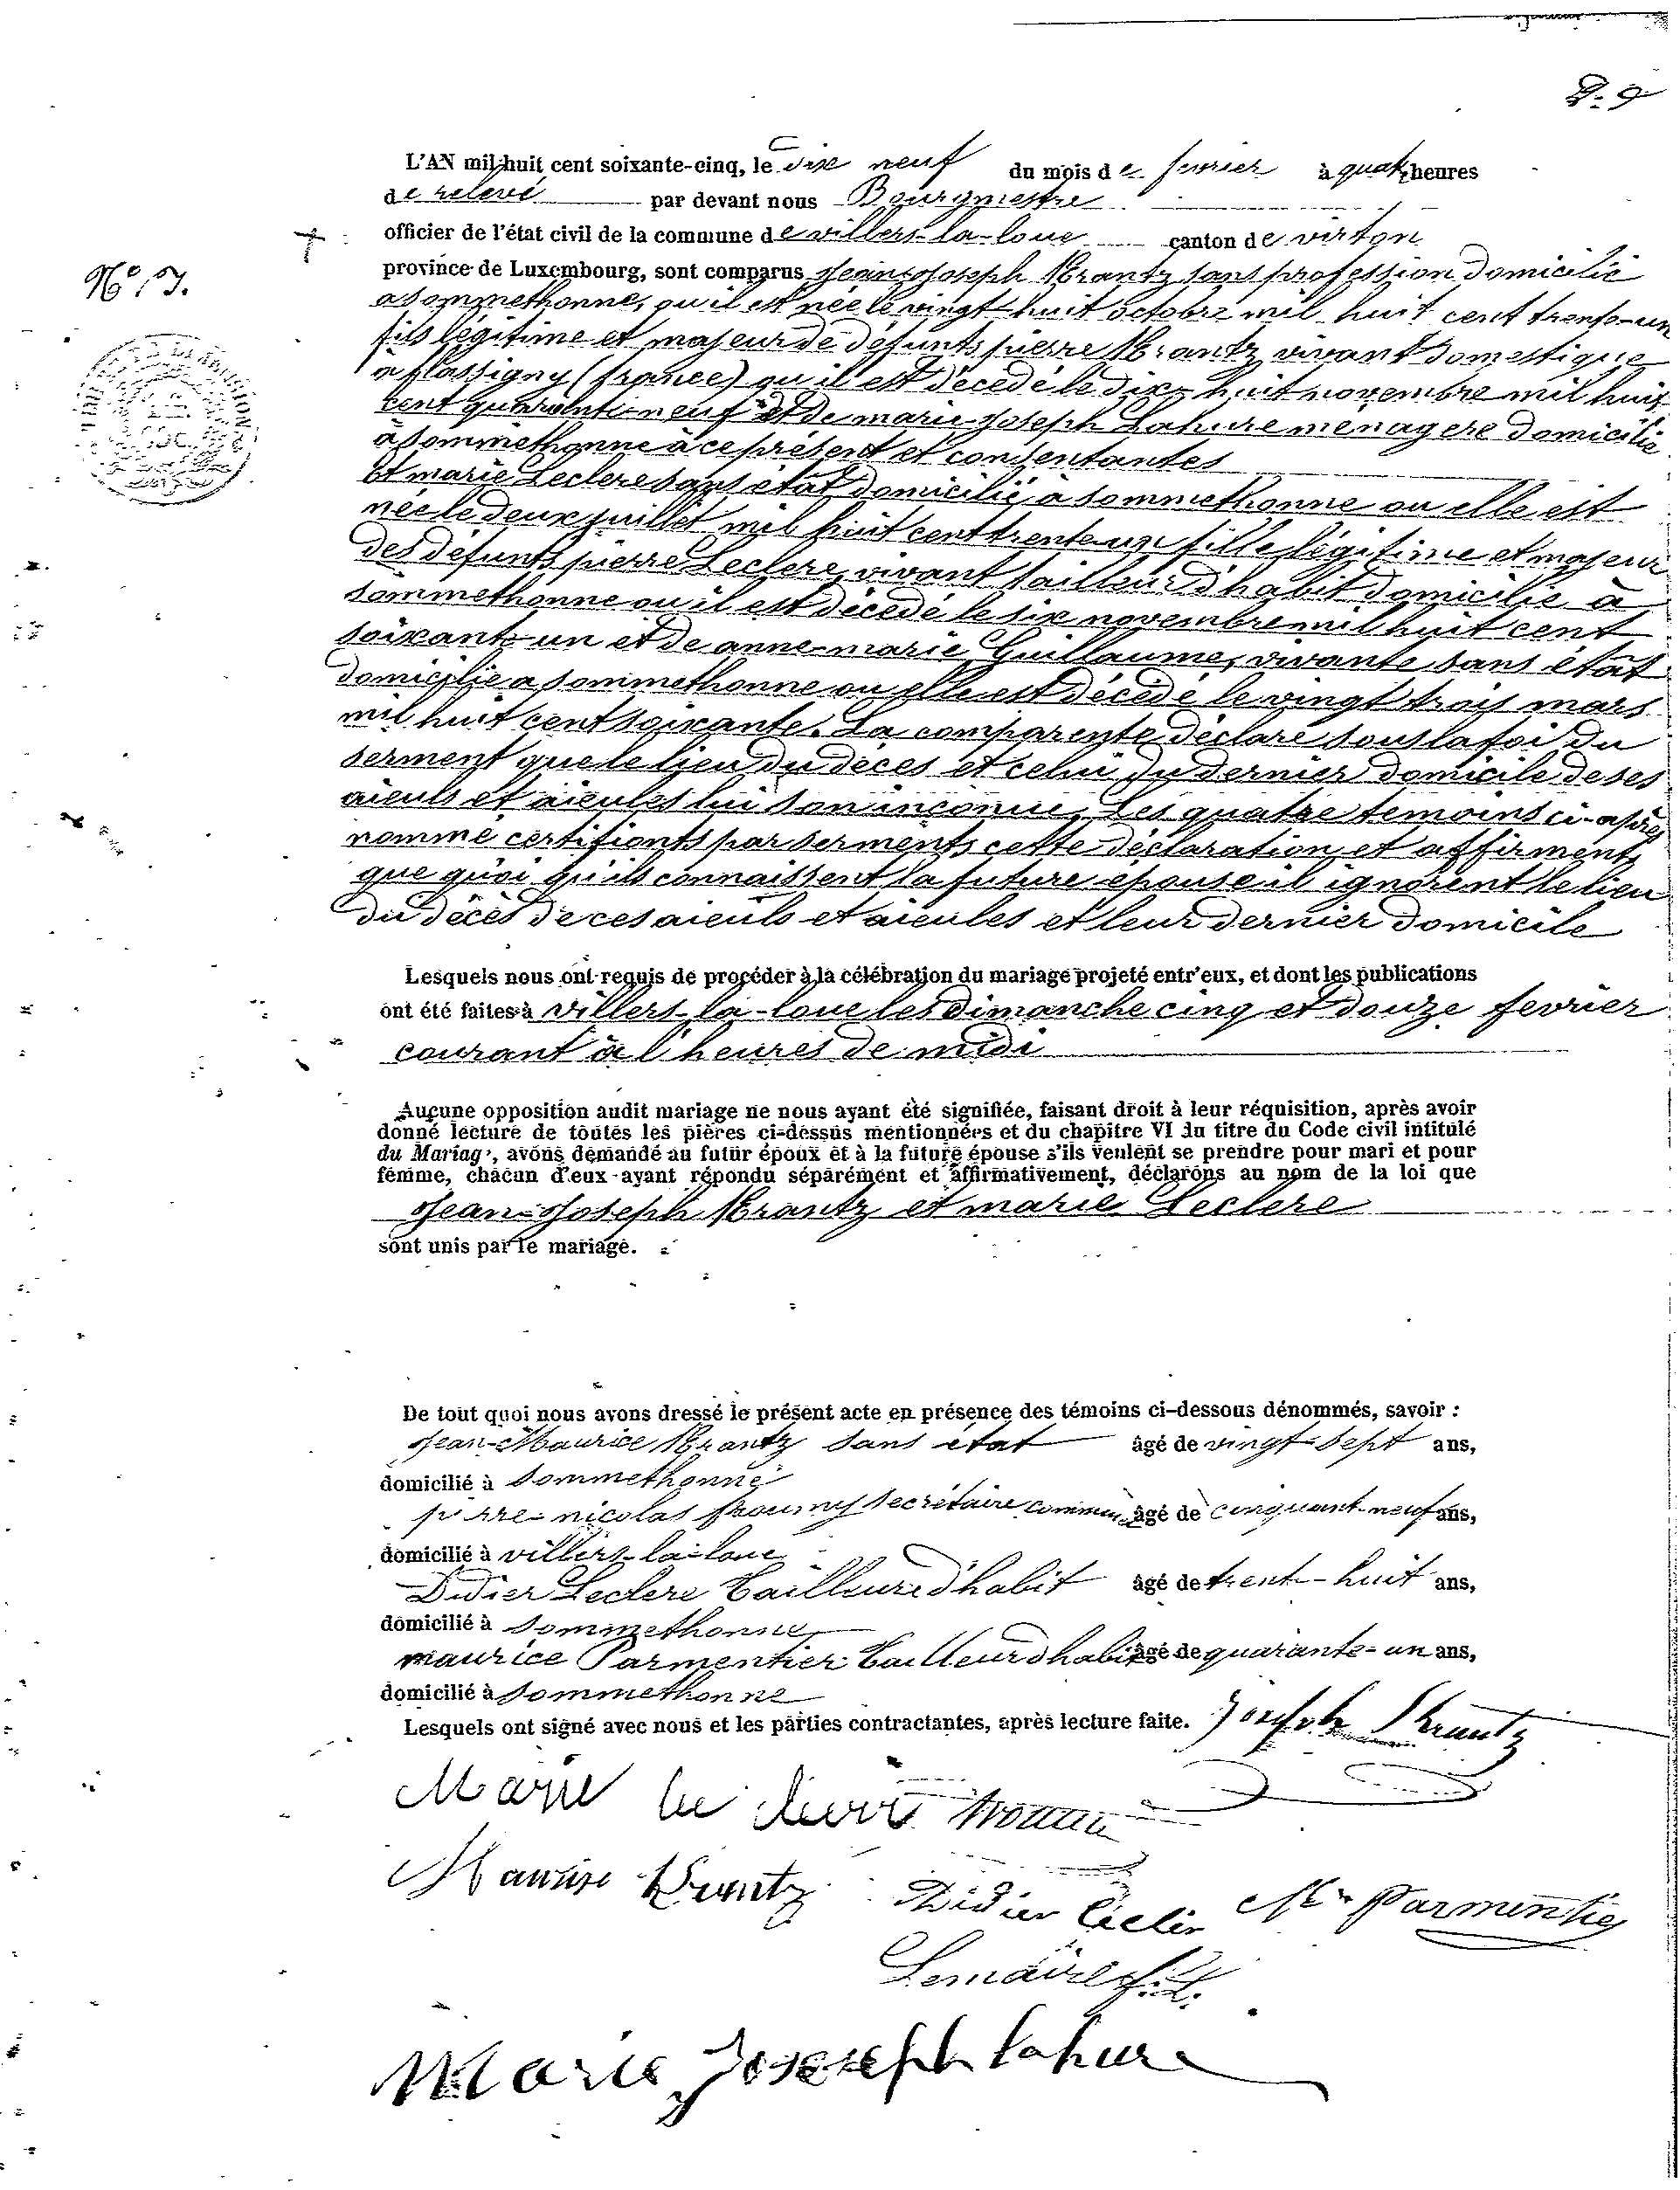 L'AN mil huit cent soixante-cinq, le dix neuf du mois de fevrier à quatre heures
de relevé par devant nous Bourgmestre
officier de l'état civil de la commune de villers-la-loue canton de virton
province de Luxembourg, sont comparus Jean-Joseph Krantz sans profession domicilié
a sommethonne, ou il est née le vingt huit octobre mil huit cent trente-un
fils légitime et majeur de defunts pierre Krantz vivant domestique
a flassigny (france) ou il est décédé le dix-huit novembre mil huit
cent quarante neuf et de marie-Joseph Lahure menagere domicilié
à sommethonne à ce présent et consentantes
Et marie Leclere sans état domicilié à sommethonne ou elle est
née le deux juillet mil huit cent trente un fille légitime et majeur
des défunts pierre Leclere vivant tailleur d'habit domicilié à
sommethonne ou il est décédé le six novembre mil huit cent
soixante un et de anne-marie Guillaume, vivante sans état
domicilié a sommethonne ou elle est décédé le vingt trois mars
mil huit cent soixante. La comparente déclare sous la foi du
serment que le lieu du décès et celui du dernier domicile de ses
aieuls et aieules lui son inconnu. Les quatre temoins ci-après
nommé certifients par serments cette déclaration et affirments
que quoi qu'ils connaissent la future epouse il ignorent le lieu
du décès de ces aieuls et aieules et leur dernier domicile
Lesquels nous ont requis de procéder à la célébration du mariage projeté entr'eux, et dont les publications
ont été faites à villers-la-loue les dimanche cinq et douze fevrier
courant à l'heures de midi
Aucune opposition audit mariage ne nous ayant été signifiée, faisant droit à leur réquisition, après avoir
donné lecture de toutes les pièces ci-dessus mentionnées et du chapitre VI du titre du Code civil intitulé
du Mariage, avons demandé au futur époux et à la future épouse s'ils veulent se prendre pour mari et pour
femme, chacun d'eux ayant répondu séparément et affirmativement, déclarons au nom de la loi que
Jean-Joseph Krantz et marie Leclere
sont unis par le mariage.
De tout quoi nous avons dressé le présent acte en présence des témoins ci-dessous dénommés, savoir :
Jean-Maurice Krantz sans état âgé de vingt-sept ans,
domicilié à sommethonne
pierre-nicolas secrétaire âgé de cinquant-neuf ans,
domicilié à villers-la-loue
Didier Leclere Tailleure d'habit âgé de trent-huit ans,
domicilié à sommethonne
maurice Parmentier Tailleur d'habit âgé de quarante-un ans,
domicilié à sommethonne
Lesquels ont signé avec nous et les parties contractantes, après lecture faite. Joseph Krantz
Marie
Maurice Krantz Didier Lecler Mce Parmentier
Lemaire
Marie Joseph lahure